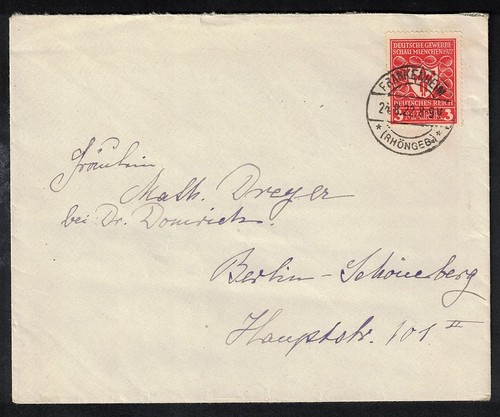 DEUTSCHE GEWERBE
SCHAU MUENCHEN 1922
DEUTSCHES REICH
3 3
FRANKENHEIM
(RHÖNGEB.)
Fräulein
Math. Dreyer
bei Dr. Domrich.
Berlin-Schöneberg
Hauptstr. 101 II